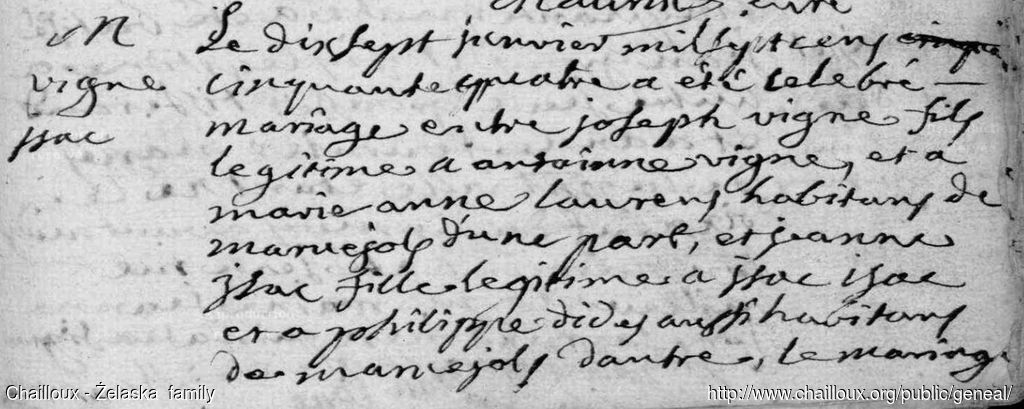 M
vigne
jssac
Le dixsept janvier mil sept cens cinqua
cinquante quatre a été celebré
mariage entre joseph vigne fils
legitime a antoinne vigne, et a
marie anne laurens habitans de
maruejols d'une part, et jeanne
jssac fille legitime a jssac isac
et a philippe dides aussi habitans
de maruejols dautre, le mariage
Chailloux - Żelaska family
http://www.chailloux.org/public/geneal/